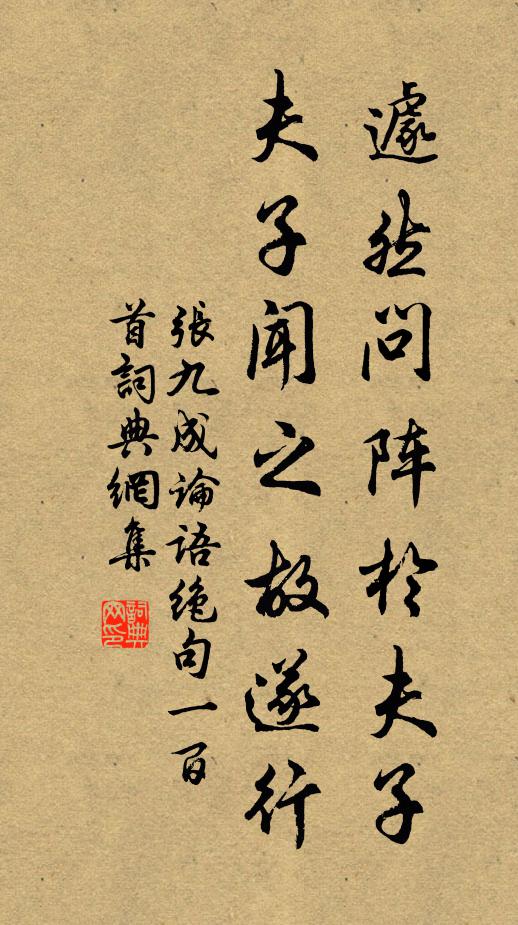 遽然问阵於夫子
夫子闻之故遂行
張九成论语绝句一百
首詞典網集
詞典
网印